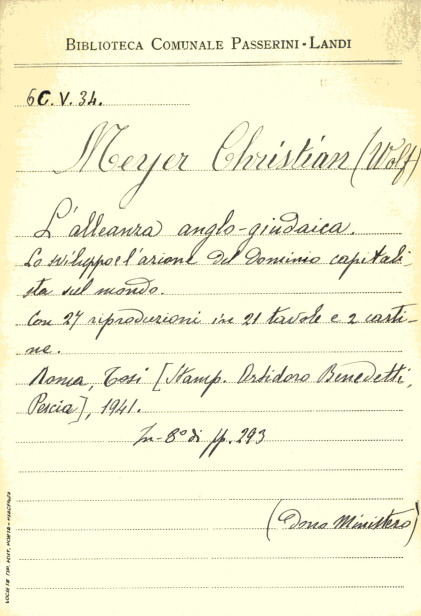 BIBLIOTECA COMUNALE PASSERINI-LANDI
6C.V.34.
Meyer Christian (Wolf)
L'alleanza anglo-giudaica.
Lo sviluppo e l'azione del dominio capitali-
sta sul mondo.
Con 27 riproduzioni in 21 tavole e 2 carti-
ne.
Roma, Tosi [Stamp. Artidoro Benedetti,
Pescia], 1941.
In-8° di pp. 293
(Dono Ministero)
SOCIETÀ TIP. EDIT. PORTA - PIACENZA